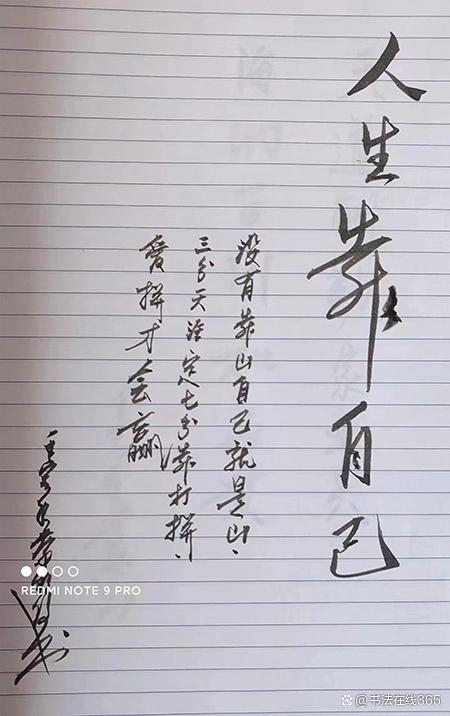 人生靠自己
没有靠山自己就是山、
三分天注定七分靠打拼、
爱拼才会赢
REDMI NOTE 9 PRO
@书法在线365